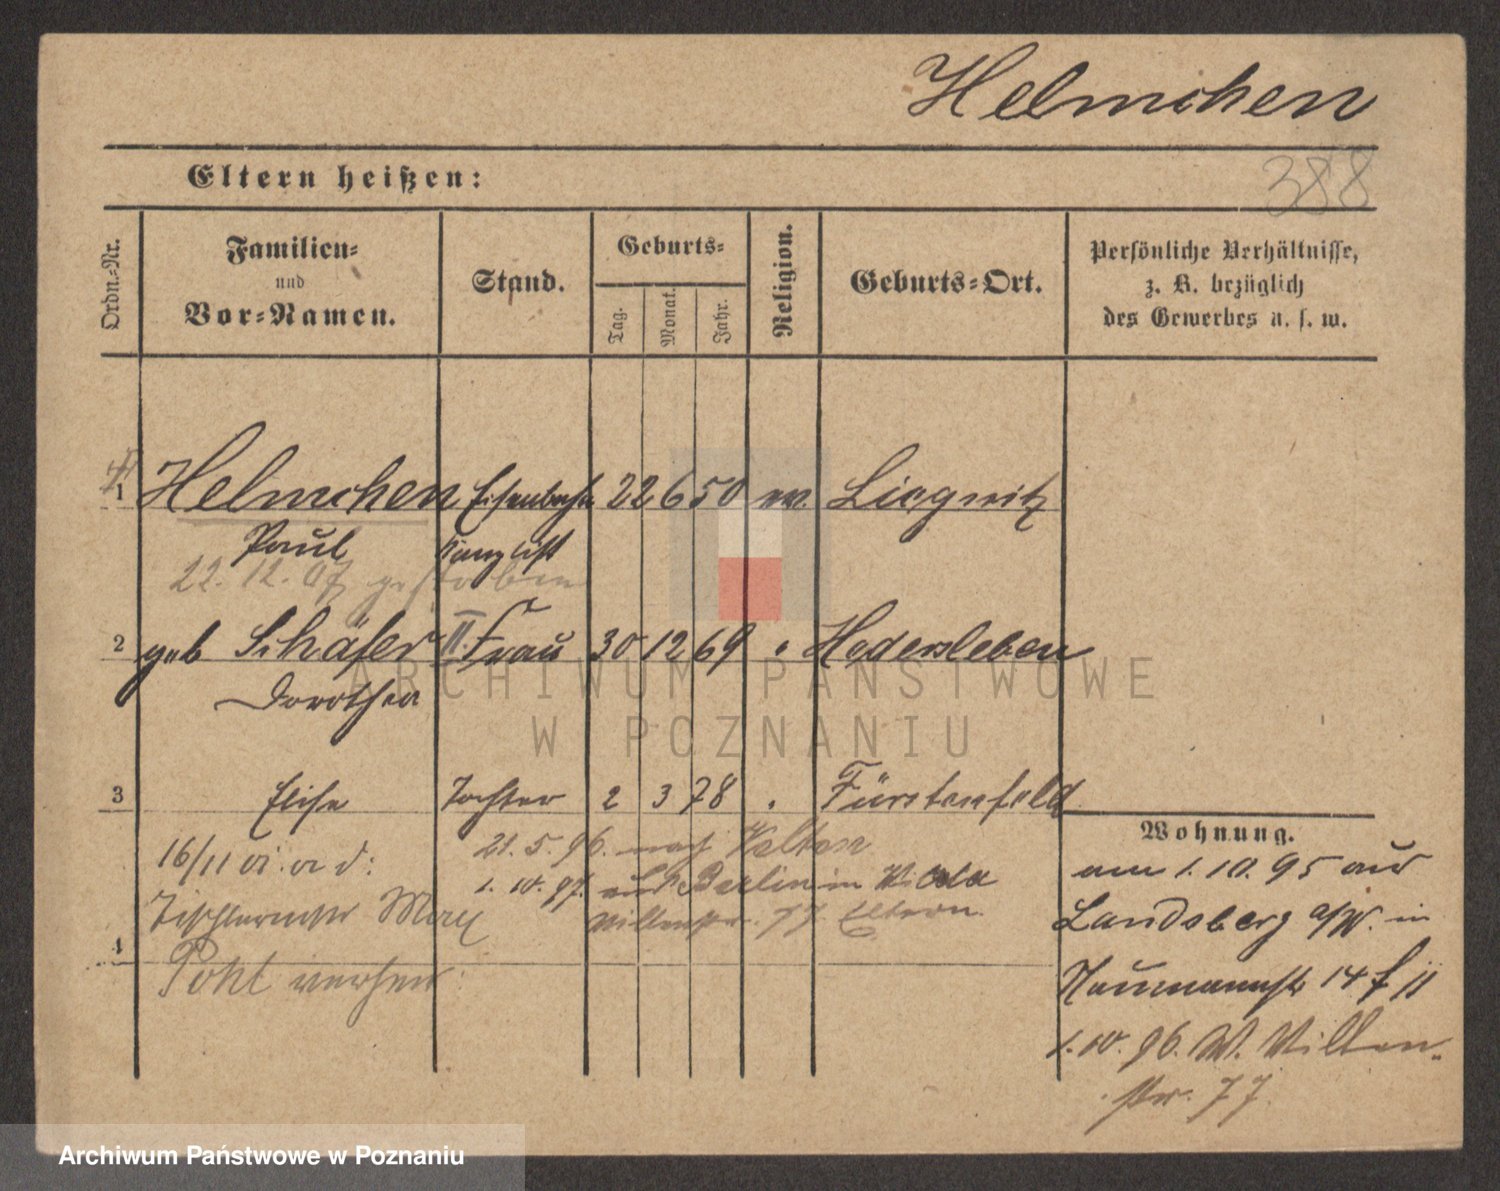 Helmchen
388
Eltern heißen:
Ordn.-Nr.
Familien-
und
Vor-Namen.
Stand.
Geburts-
Tag.
Monat.
Jahr.
Religion.
Geburts-Ort.
Persönliche Verhältnisse,
z. B. bezüglich
des Gewerbes u. s. w.
1 Helmchen Eisenbahn 22 6 50 ev. Liegnitz
Paul Kanzlist
22. 12. 07 gestorben
2 geb Schäfer II. Frau 30 12 69 " Hedersleben
Dorothea
3 Elise Tochter 2 3 78 " Fürstenfeld
Wohnung.
16/11
21. 5. 96. nach Velten
am 1. 10. 95 aus
1. 10. 97. aus Berlin in Wilda
Tischlermstr Max
Villenstr. 77. Eltern.
Landsberg a/W. in
4
Pohl verh
Naumannstr 14 f II
1. 10. 96. W. Villen-
str. 77.
ARCHIWUM PAŃSTWOWE
W POZNANIU
Archiwum Państwowe w Poznaniu